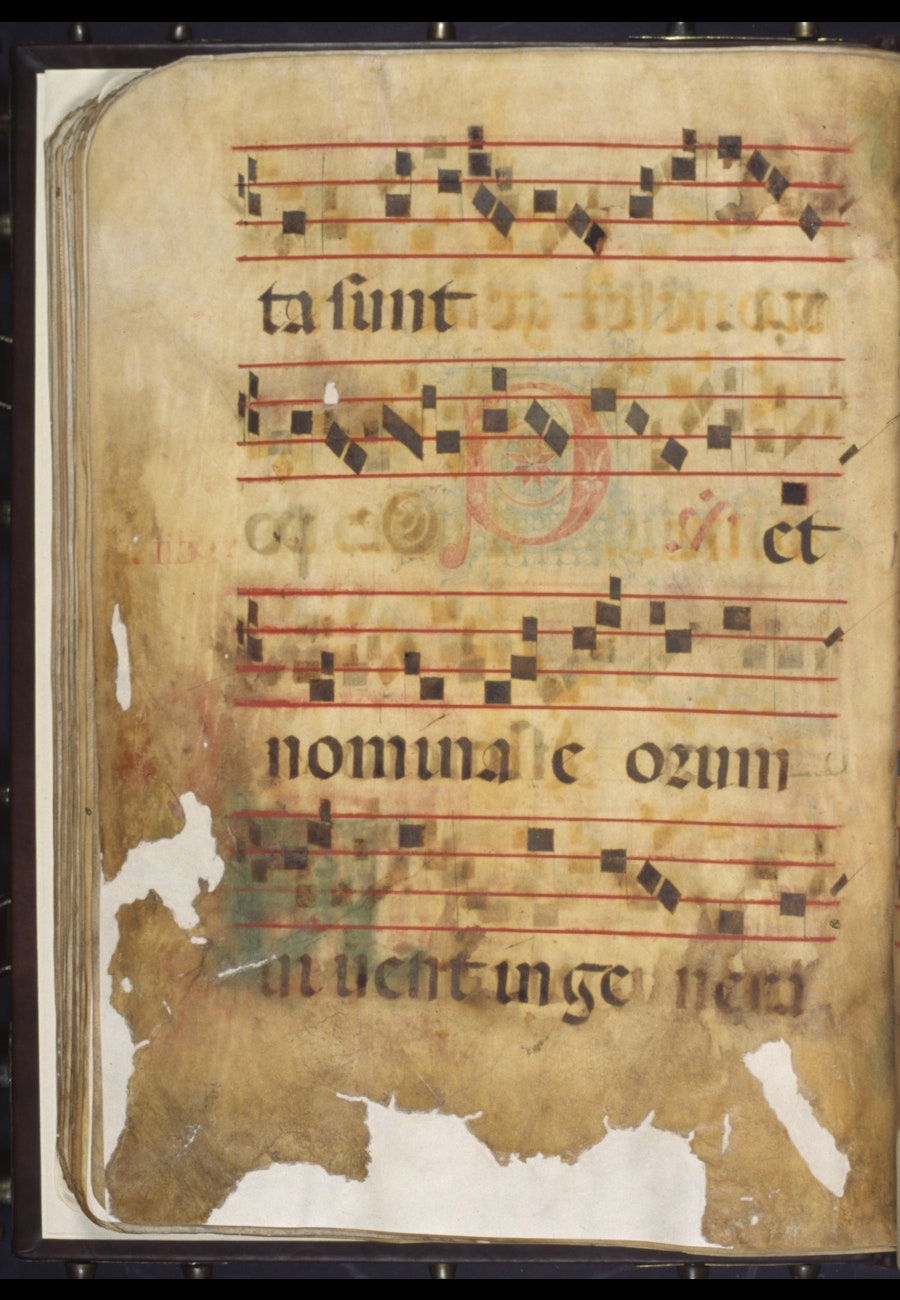 ta sunt
et
nomina e orum
in uent in ge neri